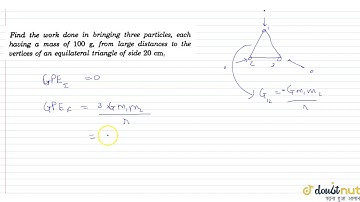 Find the work done in bringing three particles, each
having a mass of 100 g, from large distances to the
vertices of an equilateral triangle of side 20 cm.
GPE_I = 0
GPE_f = 3×Gm₁m₂
r
=
1
2
3
G₁₂ = -Gm₁m₂
r
doubtnut